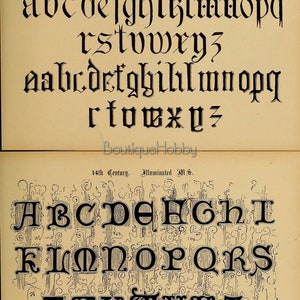 abcdefghijklmnopq
rstuvwxyz
aabcdefghiklmnopq
rstuvxyz
BoutiqueHobby
14th Century. Illuminated M.S.
ABCDEFGHI
KLMNOPQRS